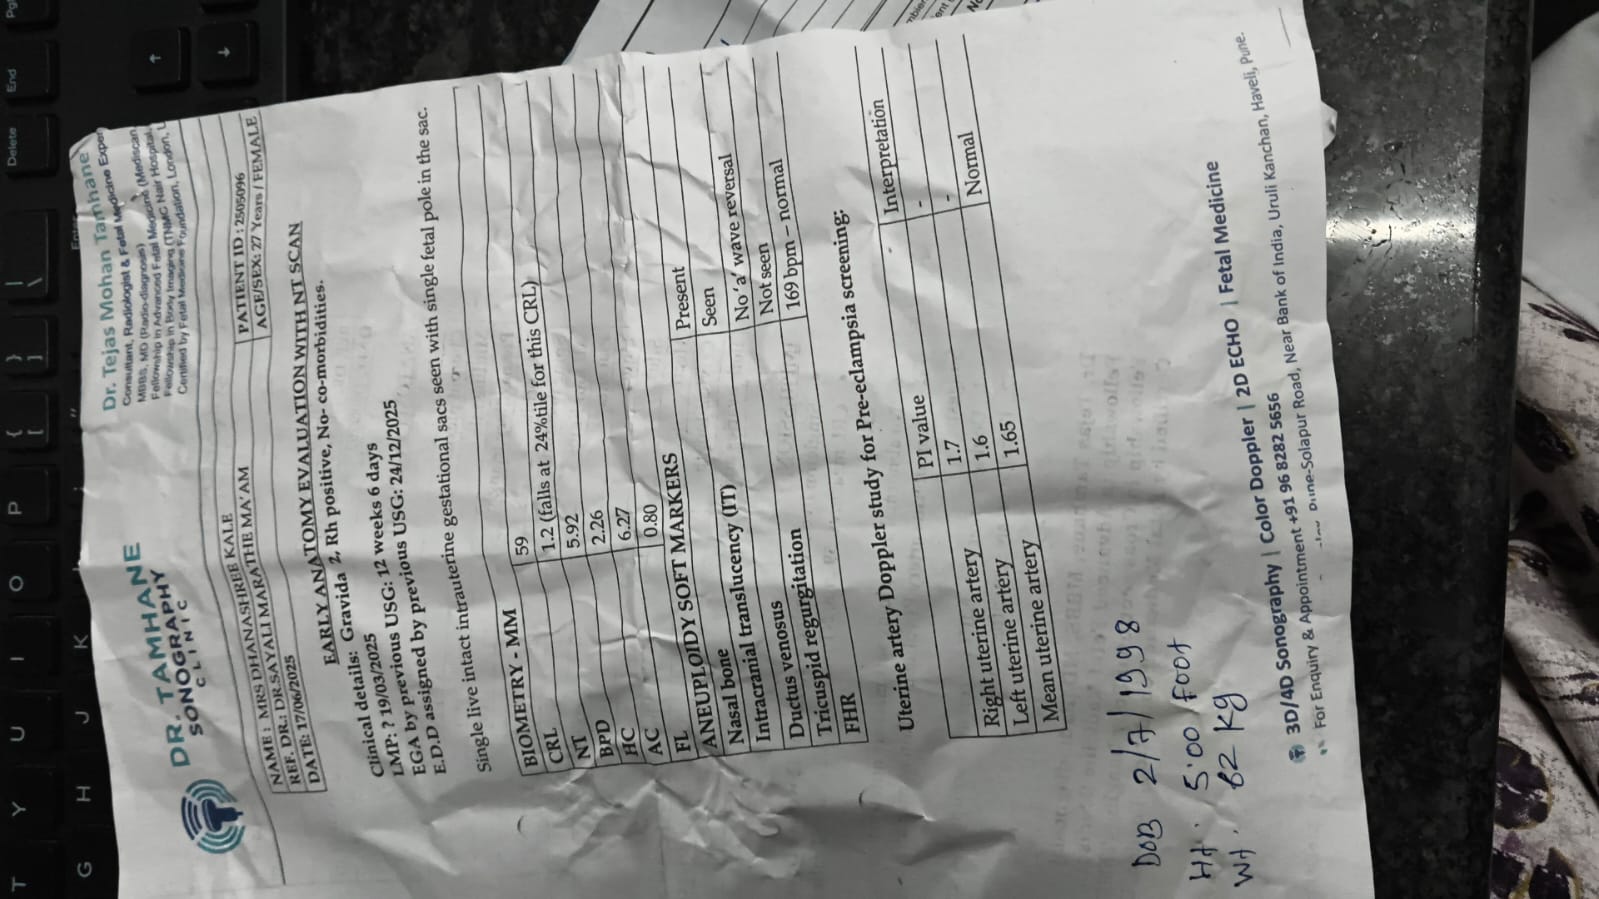 DR. TAMHANE
SONOGRAPHY
CLINIC
Dr. Tejas Mohan Tamhane
Consultant, Radiologist & Fetal Medicine Exper
MBBS, MD (Radio-diagnosis)
Fellowship in Advanced Fetal Medicine (Mediscan,
Fellowship in Body Imaging (TNMC Nair Hospital,
Certified by Fetal Medicine Foundation, London, U
NAME : MRS DHANASHREE KALE
PATIENT ID : 2505096
REF. DR.: DR.SAYALI MARATHE MA'AM
AGE/SEX: 27 Years / FEMALE
DATE: 17/06/2025
EARLY ANATOMY EVALUATION WITH NT SCAN
Clinical details: Gravida 2, Rh positive, No- co-morbidities.
LMP: ? 19/03/2025
EGA by Previous USG: 12 weeks 6 days
E.D.D assigned by previous USG: 24/12/2025
Single live intact intrauterine gestational sacs seen with single fetal pole in the sac.
BIOMETRY - MM
CRL 59
NT 1.2 (falls at 24%tile for this CRL)
BPD 5.92
HC 2.26
AC 6.27
FL 0.80
ANEUPLOIDY SOFT MARKERS
Nasal bone Present
Intracranial translucency (IT) Seen
Ductus venosus No 'a' wave reversal
Tricuspid regurgitation Not seen
FHR 169 bpm – normal
Uterine artery Doppler study for Pre-eclampsia screening:
PI value Interpretation
Right uterine artery 1.7 -
Left uterine artery 1.6 -
Mean uterine artery 1.65 Normal
DOB 2/7/1998
Ht. 5.00 foot
Wt. 62 kg
3D/4D Sonography | Color Doppler | 2D ECHO | Fetal Medicine
For Enquiry & Appointment +91 96 8282 5656
Pune-Solapur Road, Near Bank of India, Uruli Kanchan, Haveli, Pune.
T Y U I O P { [ } ] | \ Delete End
G H J K Enter